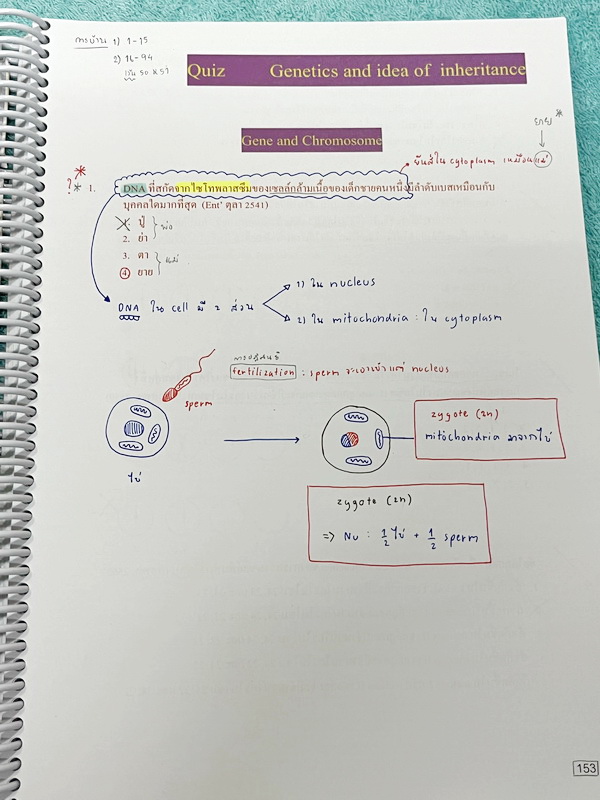 การบ้าน 1) 1-15
2) 16-94
เว้น 50 x 51
Quiz Genetics and idea of inheritance
ยาย *
Gene and Chromosome
ยีนส์ใน cytoplasm เหมือนแม่
? * * 1. DNA ที่สกัดจากไซโทพลาสซึมของเซลล์กล้ามเนื้อของเด็กชายคนหนึ่งมีลำดับเบสเหมือนกับ
บุคคลใดมากที่สุด (Ent' ตุลา 2541)
1. ปู่
2. ย่า
พ่อ
3. ตา
4 ยาย
แม่
DNA ใน cell มี 2 ส่วน
1) ใน nucleus
2) ใน mitochondria : ใน cytoplasm
การปฏิสนธิ
fertilization : sperm จะเอาเข้าแต่ nucleus
sperm
ไข่
zygote (2n)
mitochondria มาจากไข่
zygote (2n)
=> Nu : 1/2 ไข่ + 1/2 sperm
153